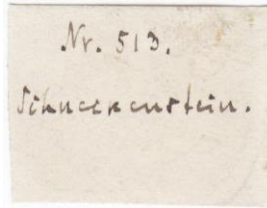 Nr. 513.
Schneckenstein.